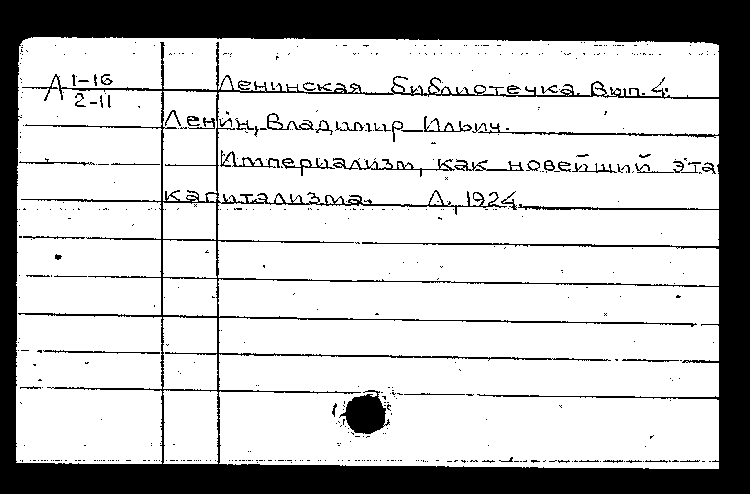 А 1-16
2-11
Ленинская библиотечка. Вып. 4.
Ленин, Владимир Ильич.
Империализм, как новейший эта
капитализма. Л., 1924.